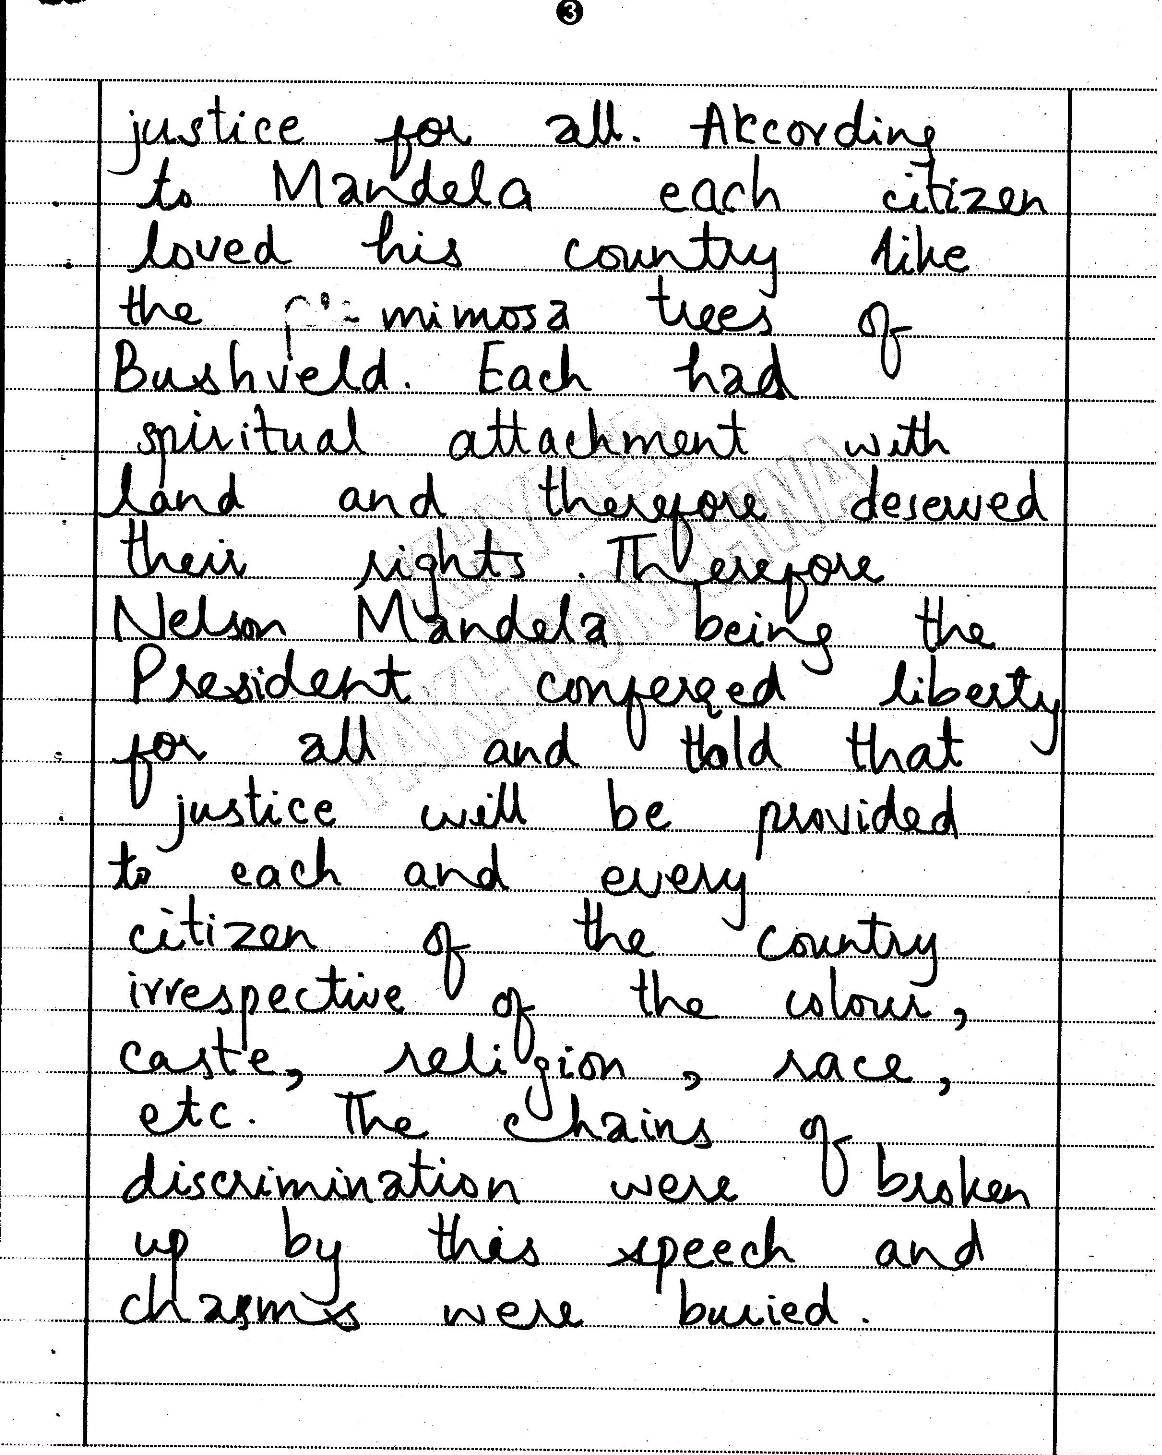 3
justice for all. According
to Mandela each citizen
loved his country like
the mimosa trees of
Bushveld. Each had
spiritual attachment with
land and therefore deserved
their rights. Therefore
Nelson Mandela being the
President conferred liberty
for all and told that
justice will be provided
to each and every
citizen of the country
irrespective of the colour,
caste, religion, race,
etc. The chains of
discrimination were broken
up by this speech and
chasms were buried.
KHYBER
PAKHTUNKHWA